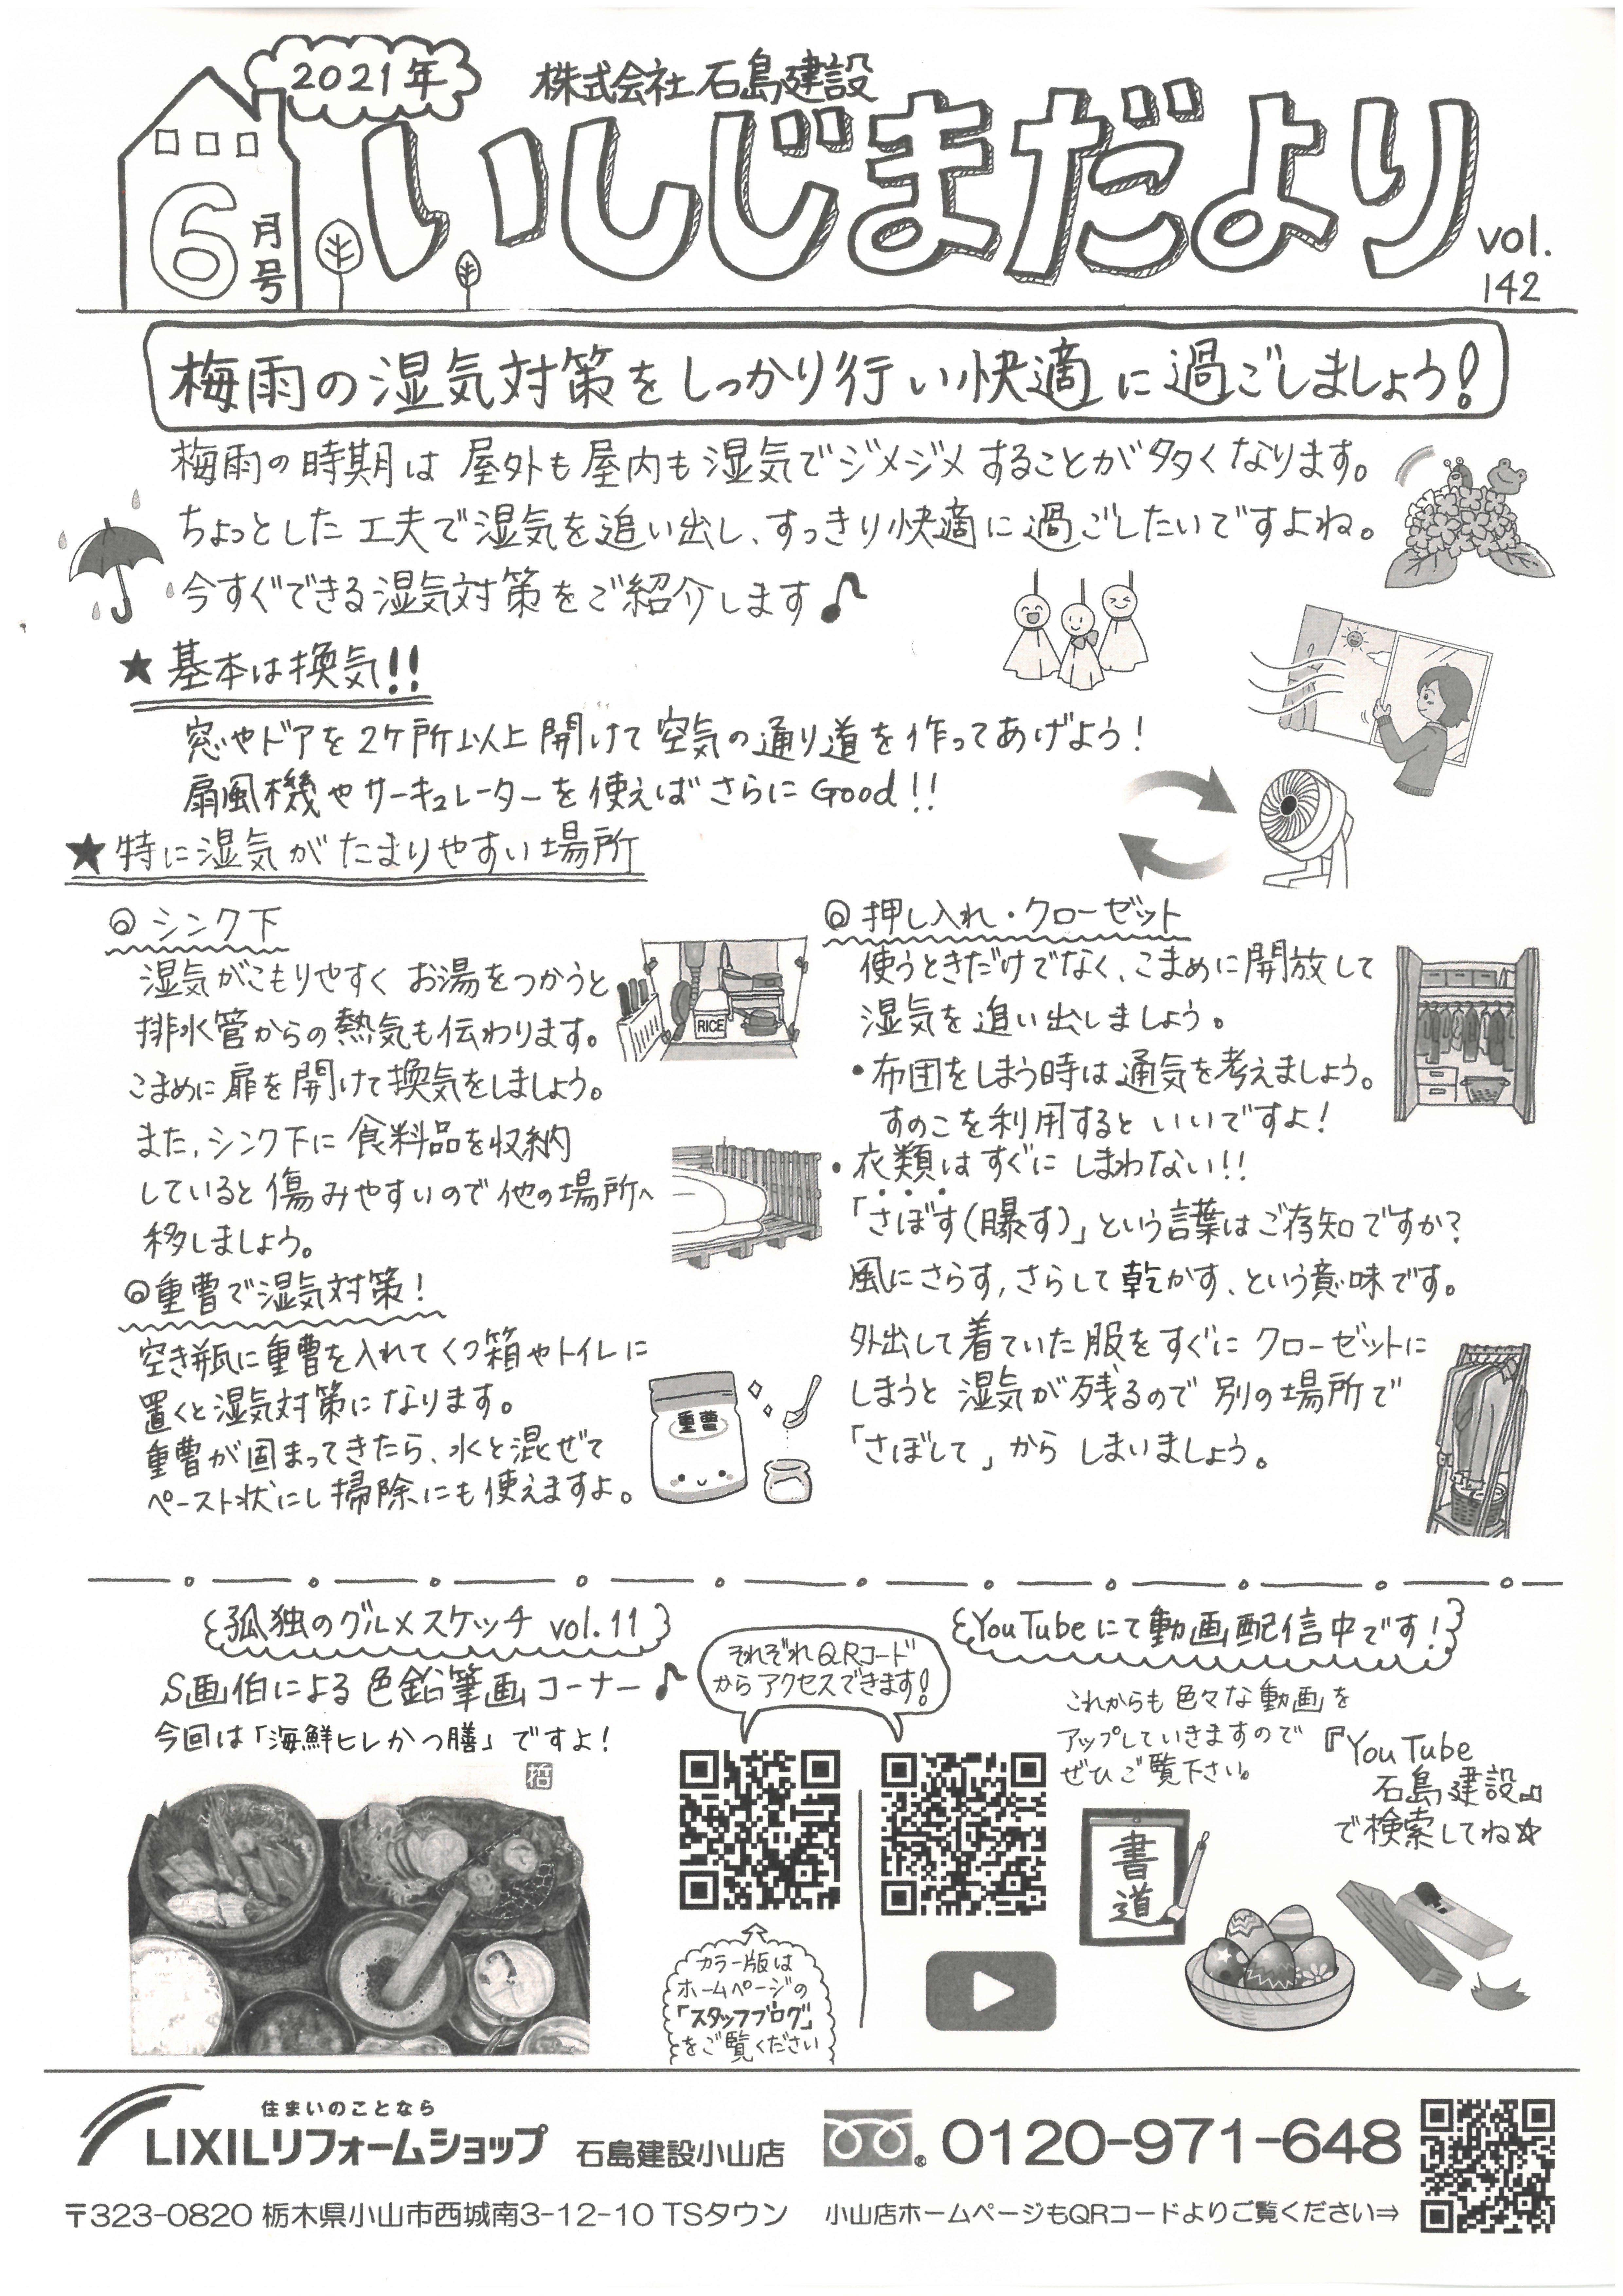 2021年
株式会社 石島建設
いしじまだより
6月号
vol.
142
梅雨の湿気対策をしっかり行い快適に過ごしましょう!
梅雨の時期は屋外も屋内も湿気でジメジメすることが多くなります。
ちょっとした工夫で湿気を追い出し、すっきり快適に過ごしたいですよね。
今すぐできる湿気対策をご紹介します♪
★基本は換気!!
窓やドアを2ケ所以上開けて空気の通り道を作ってあげよう!
扇風機やサーキュレーターを使えばさらにGood!!
★特に湿気がたまりやすい場所
◎シンク下
湿気がこもりやすくお湯をつかうと
排水管からの熱気も伝わります。
こまめに扉を開けて換気をしましょう。
また,シンク下に食料品を収納
していると傷みやすいので他の場所へ
移しましょう。
RICE
◎重曹で湿気対策!
空き瓶に重曹を入れてくつ箱やトイレに
置くと湿気対策になります。
重曹が固まってきたら、水と混ぜて
ペースト状にし掃除にも使えますよ。
重曹
◎押し入れ・クローゼット
使うときだけでなく、こまめに開放して
湿気を追い出しましょう。
・布団をしまう時は通気を考えましょう。
すのこを利用するといいですよ!
・衣類はすぐにしまわない!!
「さぼす(曝す)」という言葉はご存知ですか?
風にさらす,さらして乾かす、という意味です。
外出して着ていた服をすぐにクローゼットに
しまうと湿気が残るので別の場所で
「さぼして」からしまいましょう。
孤独のグルメスケッチ vol.11
S画伯による色鉛筆画コーナー♪
今回は「海鮮ヒレかつ膳」ですよ!
それぞれQRコード
からアクセスできます!
カラー版は
ホームページの
「スタッフブログ」
をご覧ください
YouTubeにて動画配信中です!
これからも色々な動画を
アップしていきますので
ぜひご覧下さい。
『YouTube
石島建設』
で検索してね☆
書道
住まいのことなら
LIXILリフォームショップ 石島建設小山店
0120-971-648
〒323-0820 栃木県小山市西城南3-12-10 TSタウン
小山店ホームページもQRコードよりご覧ください⇒